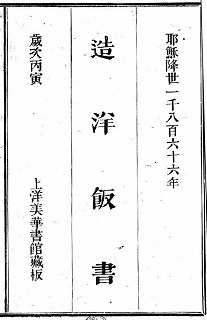 耶穌降世一千八百六十六年
造洋飯書
歲次丙寅
上洋美華書館藏板